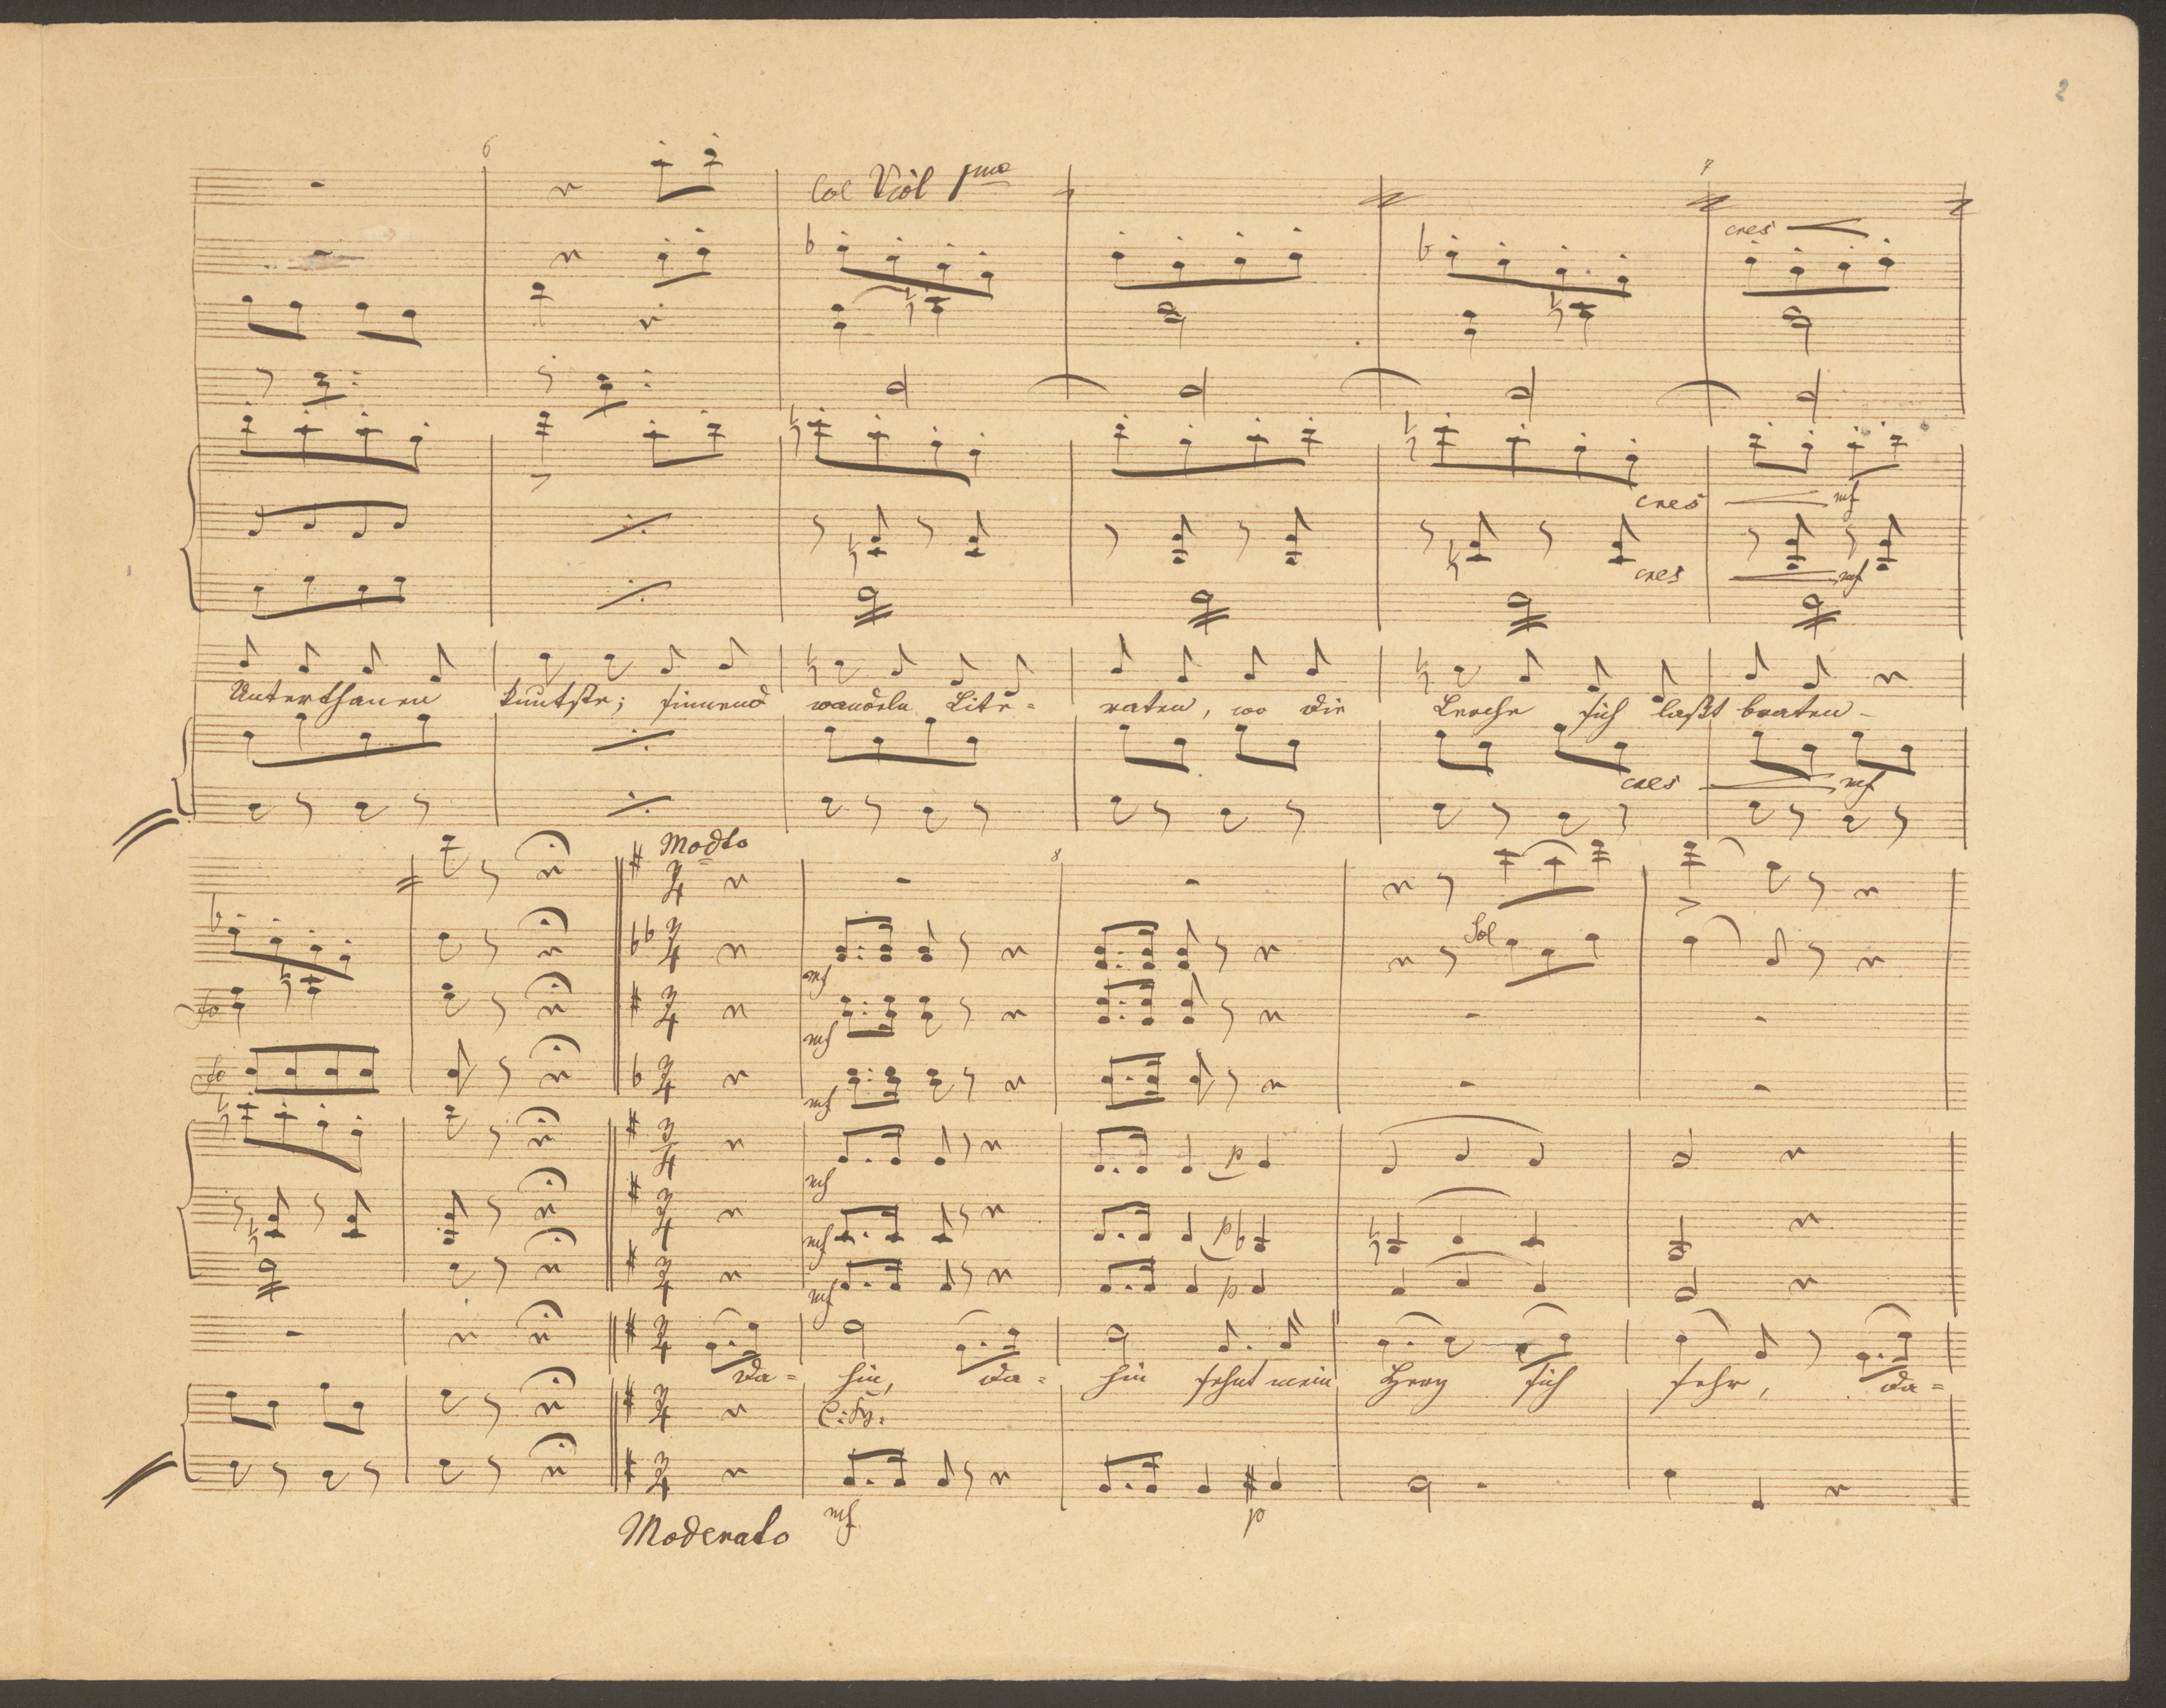 2
6
Col Viol 1mo
7
cres
cres mf
cres mf
Unterthanen kuntste; sinnend wandeln Lite- raten, wo die Lerche sich laßt braten-
cres mf
Modto
8
Sol
mf
fo
mf
fo
mf
mf p
mf p
mf p
Da- hin, da- hin sehnt mein Herz sich sehr, da-
mf p
Moderato